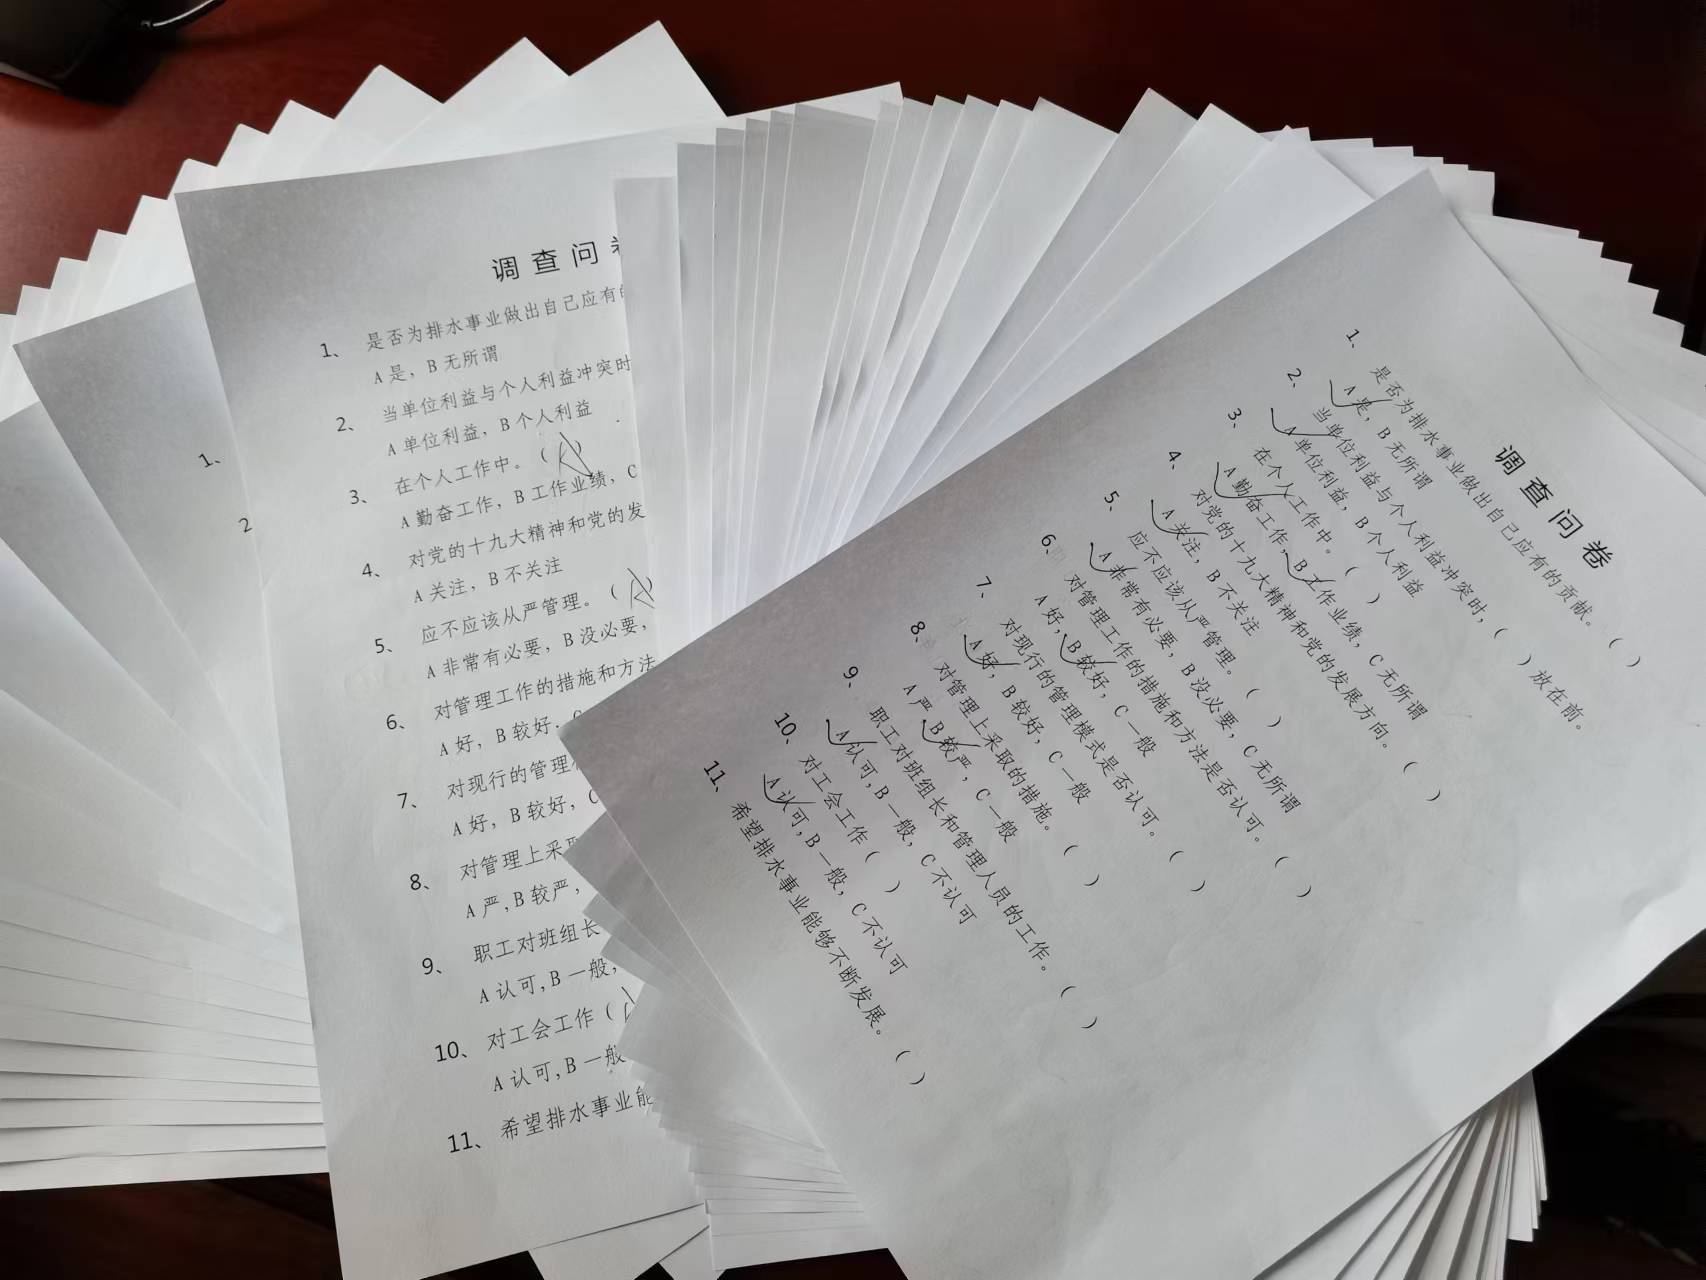 1、
2
调查问
1、 是否为排水事业做出自己应有
A 是，B 无所谓
2、 当单位利益与个人利益冲突时
A 单位利益，B 个人利益
3、 在个人工作中。（A）
A 勤奋工作，B 工作业绩，C
4、 对党的十九大精神和党的发
A 关注，B 不关注
5、 应不应该从严管理。（A）
A 非常有必要，B 没必要，
6、 对管理工作的措施和方法
A 好，B 较好，C
7、 对现行的管理
A 好，B 较好，C
8、 对管理上采
A 严,B 较严，
9、 职工对班组长
A 认可,B 一般，
10、 对工会工作（A
A 认可,B 一般
11、 希望排水事业能
调查问卷
1、 是否为排水事业做出自己应有的贡献。（ ）
A 是，B 无所谓
2、 当单位利益与个人利益冲突时，（ ）放在前。
A 单位利益，B 个人利益
3、 在个人工作中。（ ）
A 勤奋工作，B 工作业绩，C 无所谓
4、 对党的十九大精神和党的发展方向。（ ）
A 关注，B 不关注
5、 应不应该从严管理。（ ）
A 非常有必要，B 没必要，C 无所谓
6、 对管理工作的措施和方法是否认可。（ ）
A 好，B 较好，C 一般
7、 对现行的管理模式是否认可。（ ）
A 好，B 较好，C 一般
8、 对管理上采取的措施。（ ）
A 严 B 较严，C 一般
9、 职工对班组长和管理人员的工作。（ ）
A 认可,B 一般，C 不认可
10、 对工会工作（ ）
A 认可,B 一般，C 不认可
11、 希望排水事业能够不断发展。（ ）